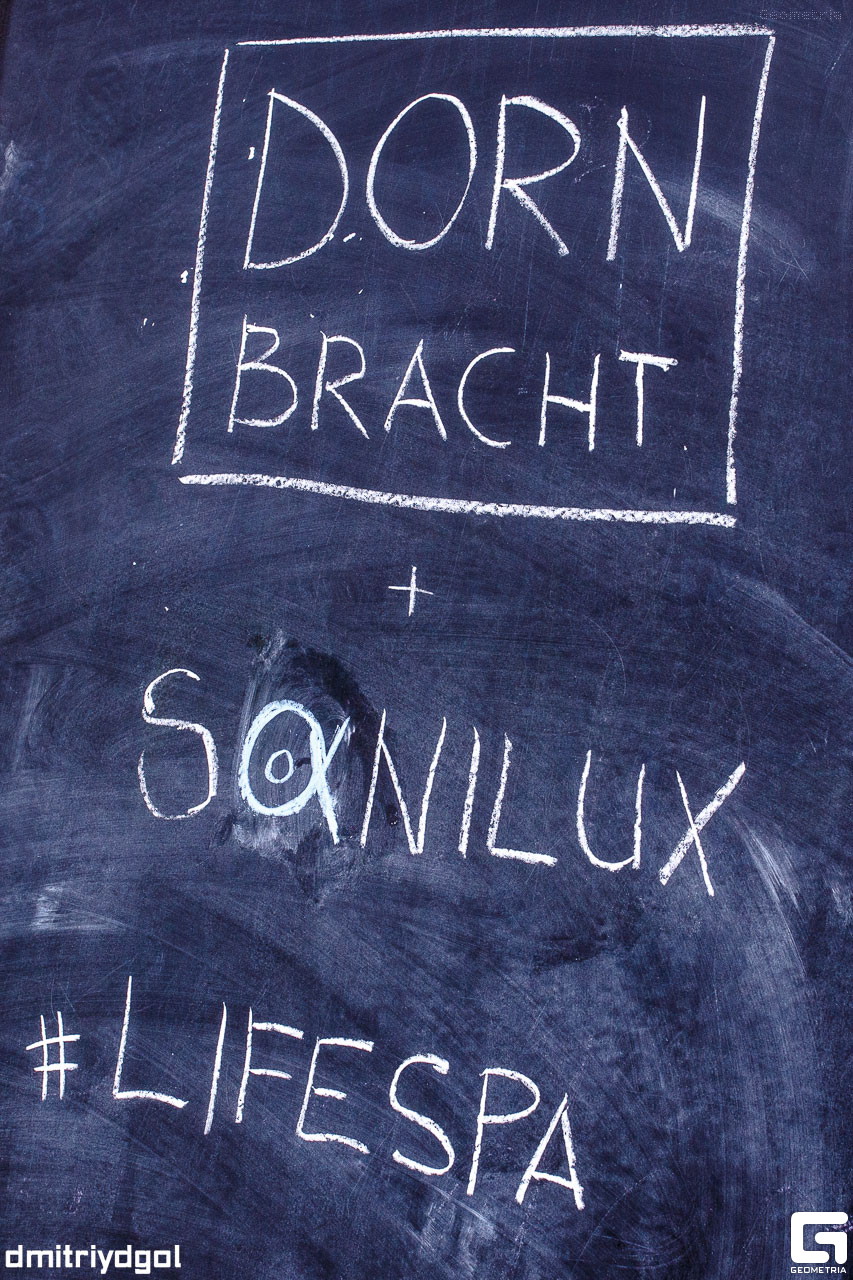 Geometria
DORN
BRACHT
+
SANILUX
#LIFESPA
dmitriydgol
GEOMETRIA